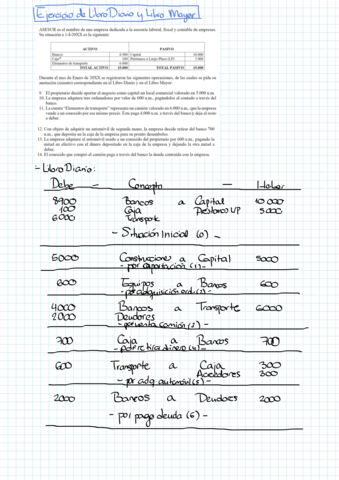 Ejercicio de Libro Diario y Libro Mayor
ASESUR es el nombre de una empresa dedicada a la asesoría laboral, fiscal y contable de empresas.
Su situación a 1-8-20XX es la siguiente:
ACTIVO PASIVO
Bancos 8.900 Capital 10.000
Caja 100 Préstamos a Largo Plazo (LP) 5.000
Elementos de transporte 6.000
TOTAL ACTIVO 15.000 TOTAL PASIVO 15.000
Durante el mes de Enero de 20XX se registraron las siguientes operaciones, de las cuales se pide su
anotación (asiento) correspondiente en el Libro Diario y en el Libro Mayor:
9. El propietario decide aportar al negocio como capital un local comercial valorado en 5.000 u.m.
10. La empresa adquiere tres ordenadores por valor de 600 u.m., pagándolos al contado a través del
banco.
11. La cuenta "Elementos de transporte" representa un camión valorado en 6.000 u.m., que la empresa
vende a un conocido por ese mismo precio. Este paga 4.000 u.m. a través del banco y deja el resto
a deber.
12. Con objeto de adquirir un automóvil de segunda mano, la empresa decide retirar del banco 700
u.m., que deposita en la caja de la empresa para su pronto desembolso.
13. La empresa adquiere el automóvil usado a un conocido del propietario por 600 u.m., pagando la
mitad en efectivo con el dinero depositado en la caja de la empresa y dejando la otra mitad a
deber.
14. El conocido que compró el camión paga a través del banco la deuda contraída con la empresa.
- Libro Diario:
Debe — Concepto — Haber
8900 Bancos a Capital 10000
100 Caja Préstamo LP 5000
6000 Transporte
- Situación Inicial (0) -
5000 Construcciones a Capital 5000
- por aportación (1) -
600 Equipos a Bancos 600
- por adquisición ord. (2) -
4000 Bancos a Transporte 6000
2000 Deudores
- por venta camión (3) -
700 Caja a Bancos 700
- por retirar dinero (4) -
600 Transporte a Caja 300
Acreedores 300
- por adq automóvil (5) -
2000 Bancos a Deudores 2000
- por pago deuda (6) -